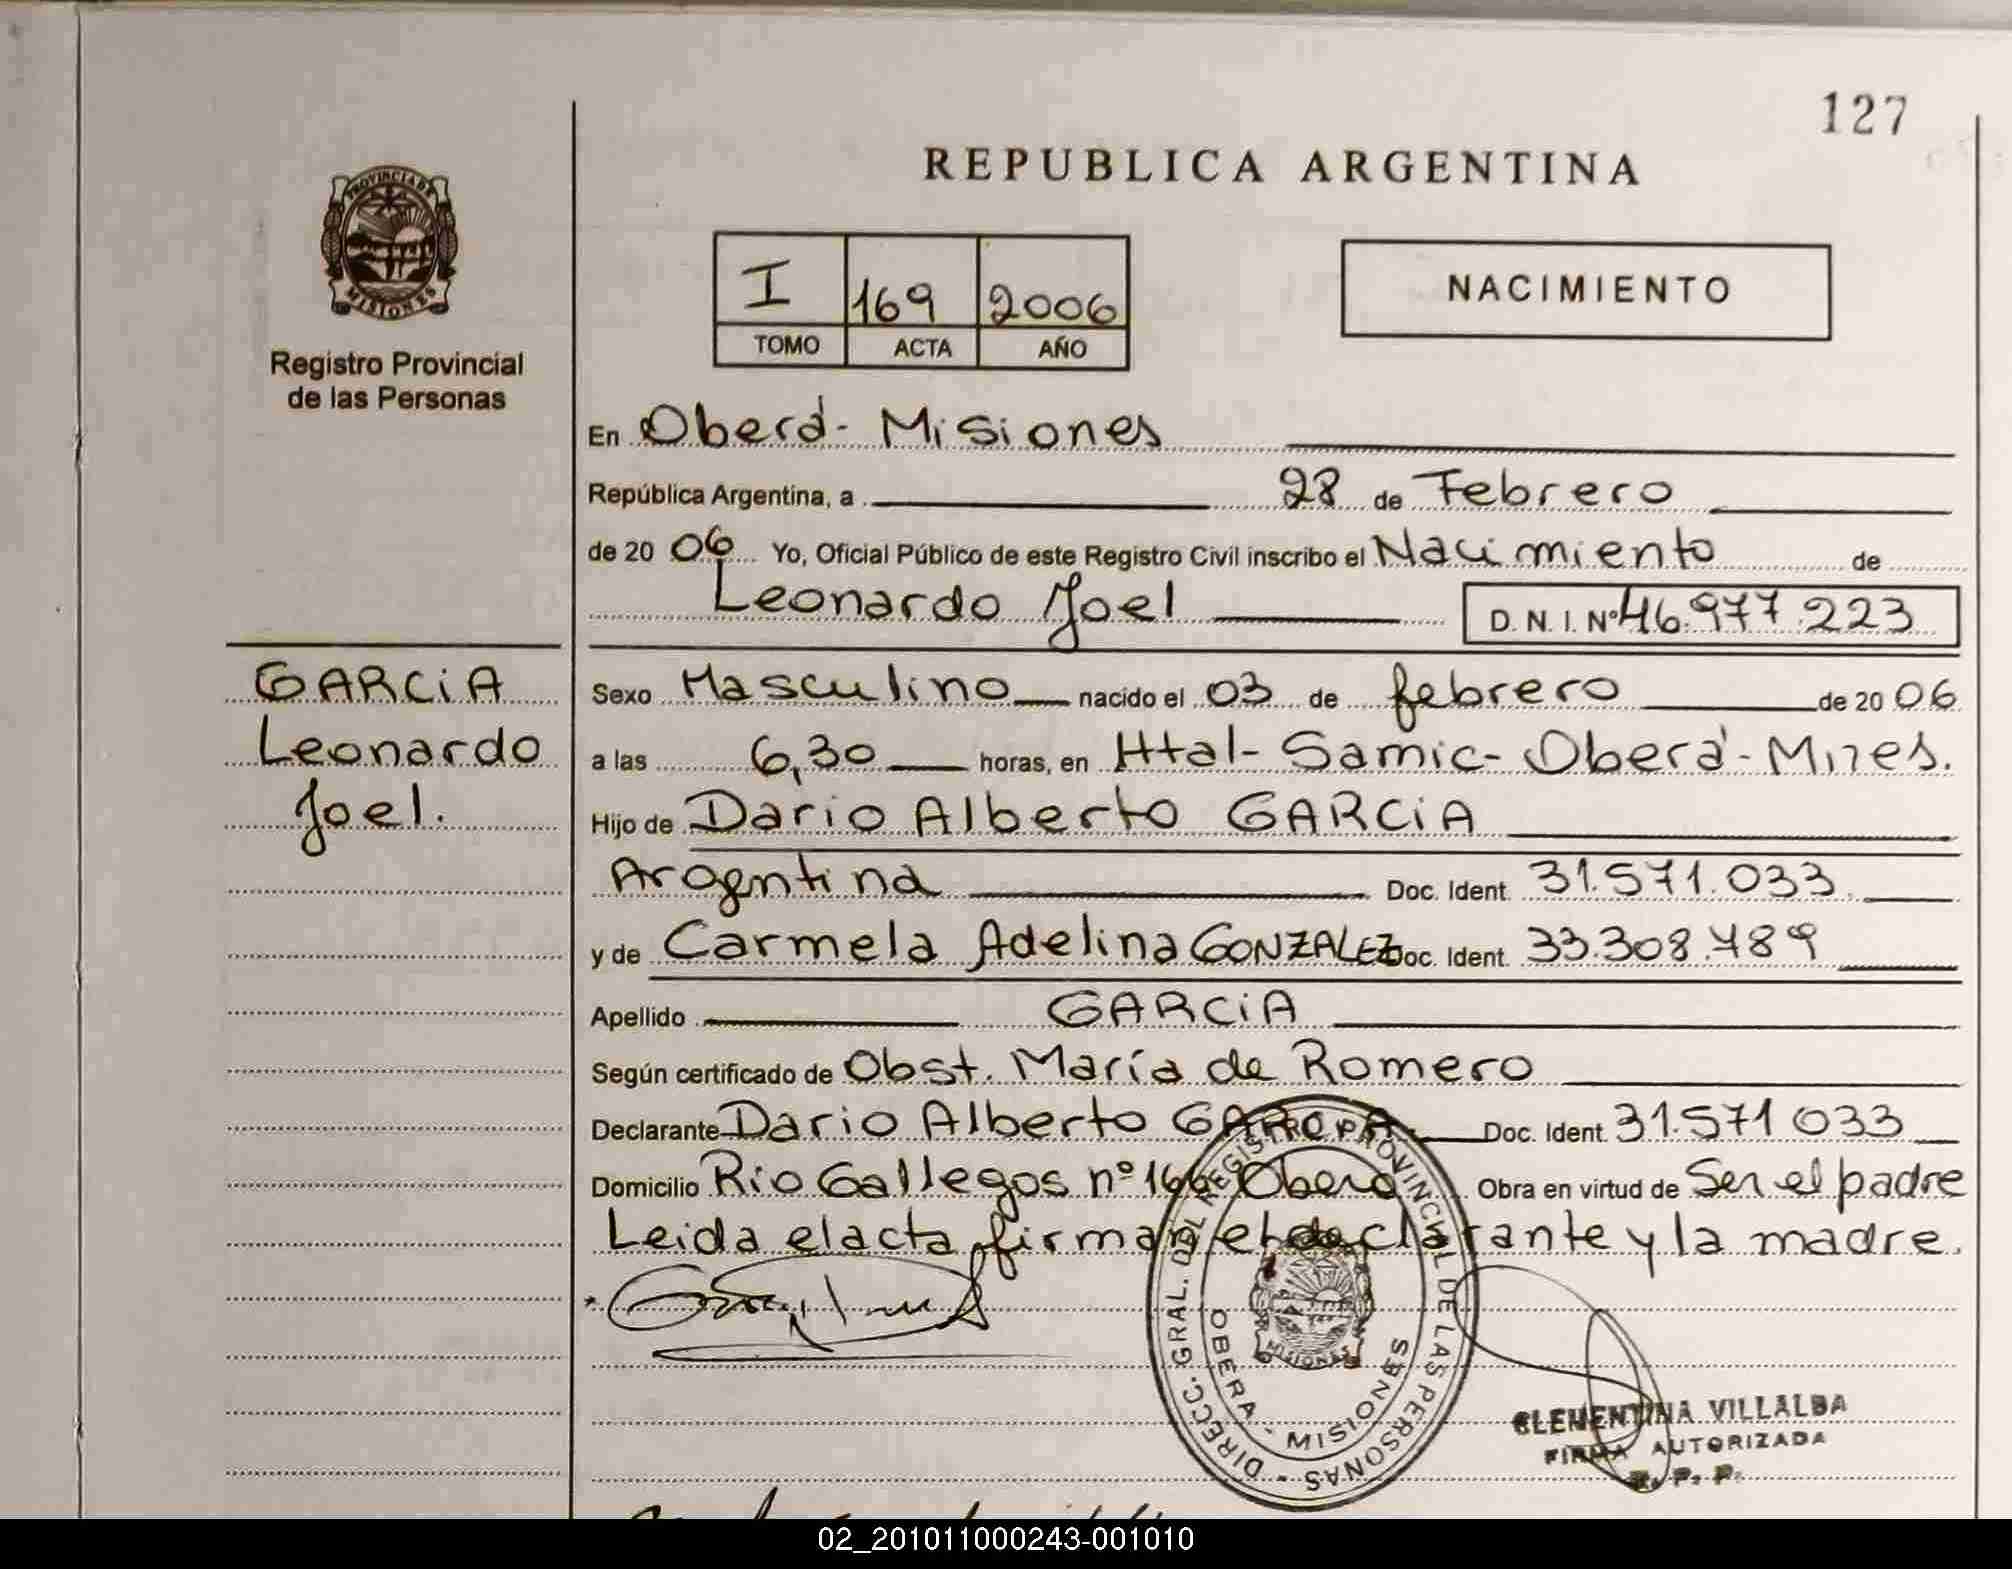 127
REPUBLICA ARGENTINA
PROVINCIA DE
MISIONES
Registro Provincial
de las Personas
I 169 2006
TOMO ACTA AÑO
NACIMIENTO
En Oberá - Misiones
República Argentina, a 28 de Febrero
de 20 06 Yo, Oficial Público de este Registro Civil inscribo el Nacimiento de
Leonardo Joel D. N. I. Nº 46.977.223
GARCiA
Leonardo
Joel.
Sexo Masculino nacido el 03 de febrero de 20 06
a las 6,30 horas, en Htal - Samic - Oberá - Mnes.
Hijo de Dario Alberto GARCiA
Argentina Doc. Ident. 31.571.033.
y de Carmela Adelina GONZALEZ Doc. Ident. 33.308.789
Apellido GARCiA
Según certificado de Obst. María de Romero
Declarante Dario Alberto GARCiA Doc. Ident. 31.571 033
Domicilio Rio Gallegos nº 166 Oberá Obra en virtud de Ser el padre
Leida el acta firman el declarante y la madre.
DIRECC. GRAL. DEL REGISTRO PROVINCIAL DE LAS PERSONAS -
OBERA - MISIONES
MISIONES
CLEMENTINA VILLALBA
FIRMA AUTORIZADA
R. P. P.
02_201011000243-001010